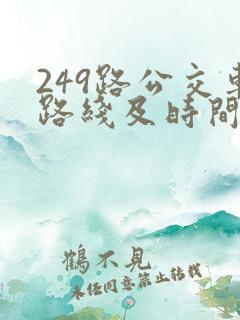 249路公交車
路綫及時間
鶴不見
未經同意禁止轉載